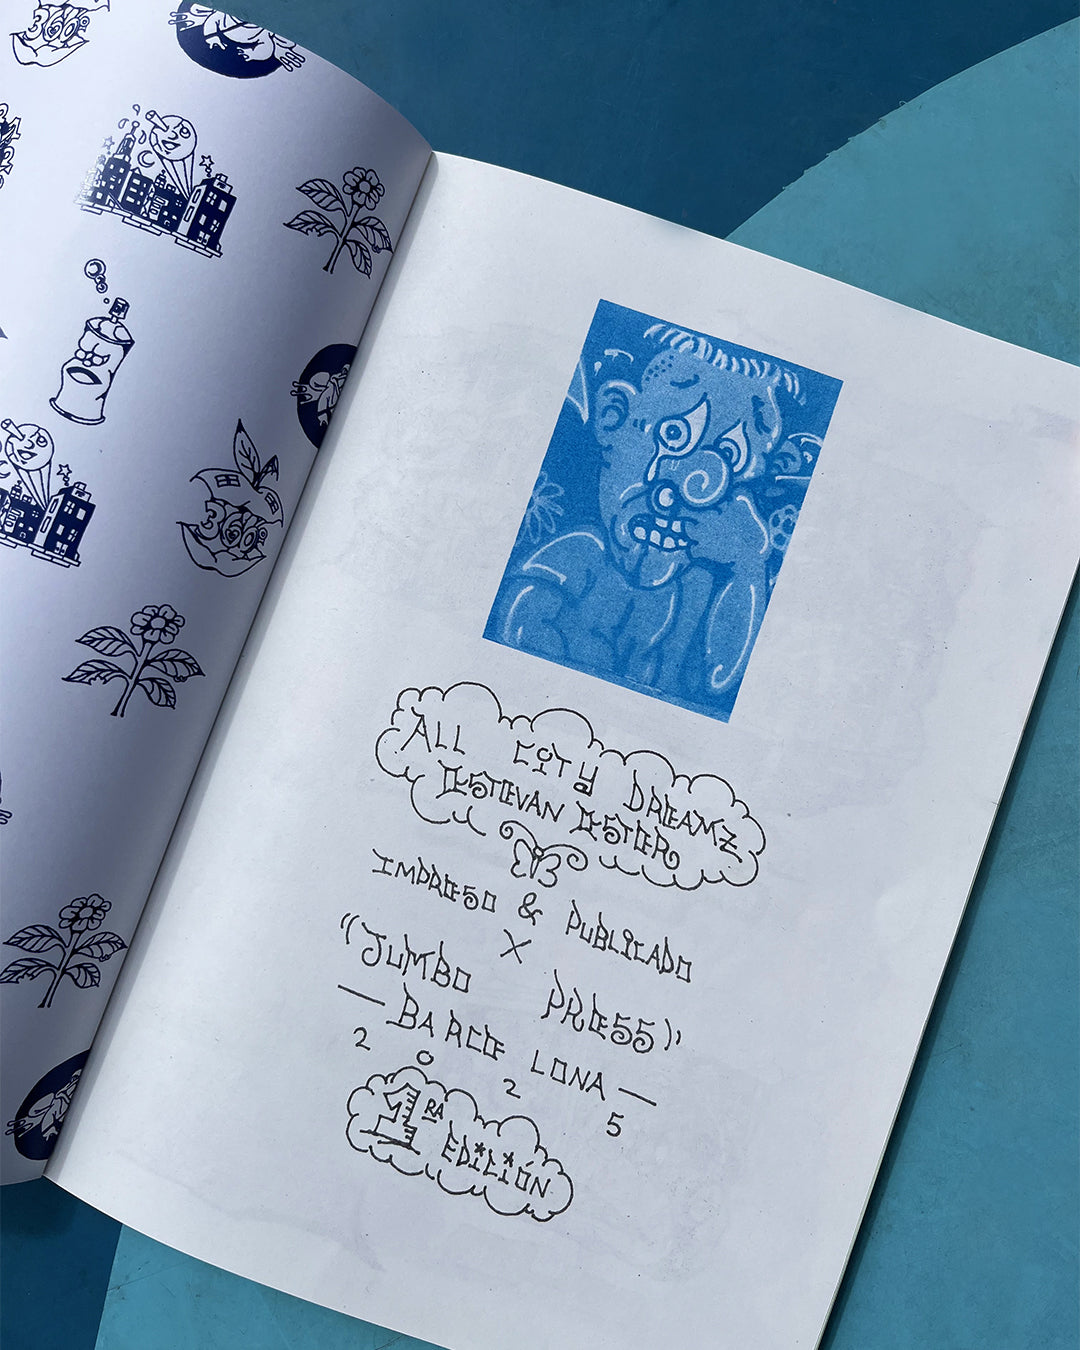 360°
360°
ALL CITY DREAMZ
ESTEVAN ESTER
IMPRESO & PUBLICADO
X
"JUMBO PRESS"
— BARCELONA —
2025
1RA EDICIÓN